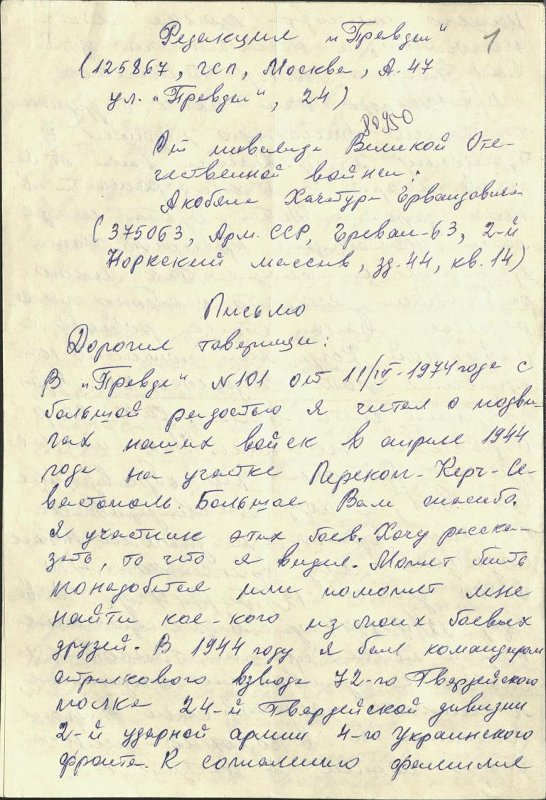 1
Редакция „Правды“
(125867, ГСП, Москва, А-47
ул. „Правды“, 24)
80950
От инвалида Великой Оте-
чественной войны:
Акобяна Хачатур Ервандовича
(375063, Арм. ССР, Ереван-63, 2-й
Норкский массив, зд. 44, кв. 14)
Письмо
Дорогие товарищи:
В „Правде“ N101 от 11/IV-1974 года с
большой радостью я читал о подви-
гах наших войск в апреле 1944
года на участке Перекоп-Керч-Се-
вастополь. Большое Вам спасибо.
Я участник этих боев. Хочу расска-
зать, то что я видел. Может быть
понадобится или поможет мне
найти кое-кого из моих боевых
друзей. В 1944 году я был командиром
стрелкового взвода 72-го Гвардейского
полка 24-й Гвардейской дивизии
2-й ударной армии 4-го Украинского
фронта. К сожалению фамилия